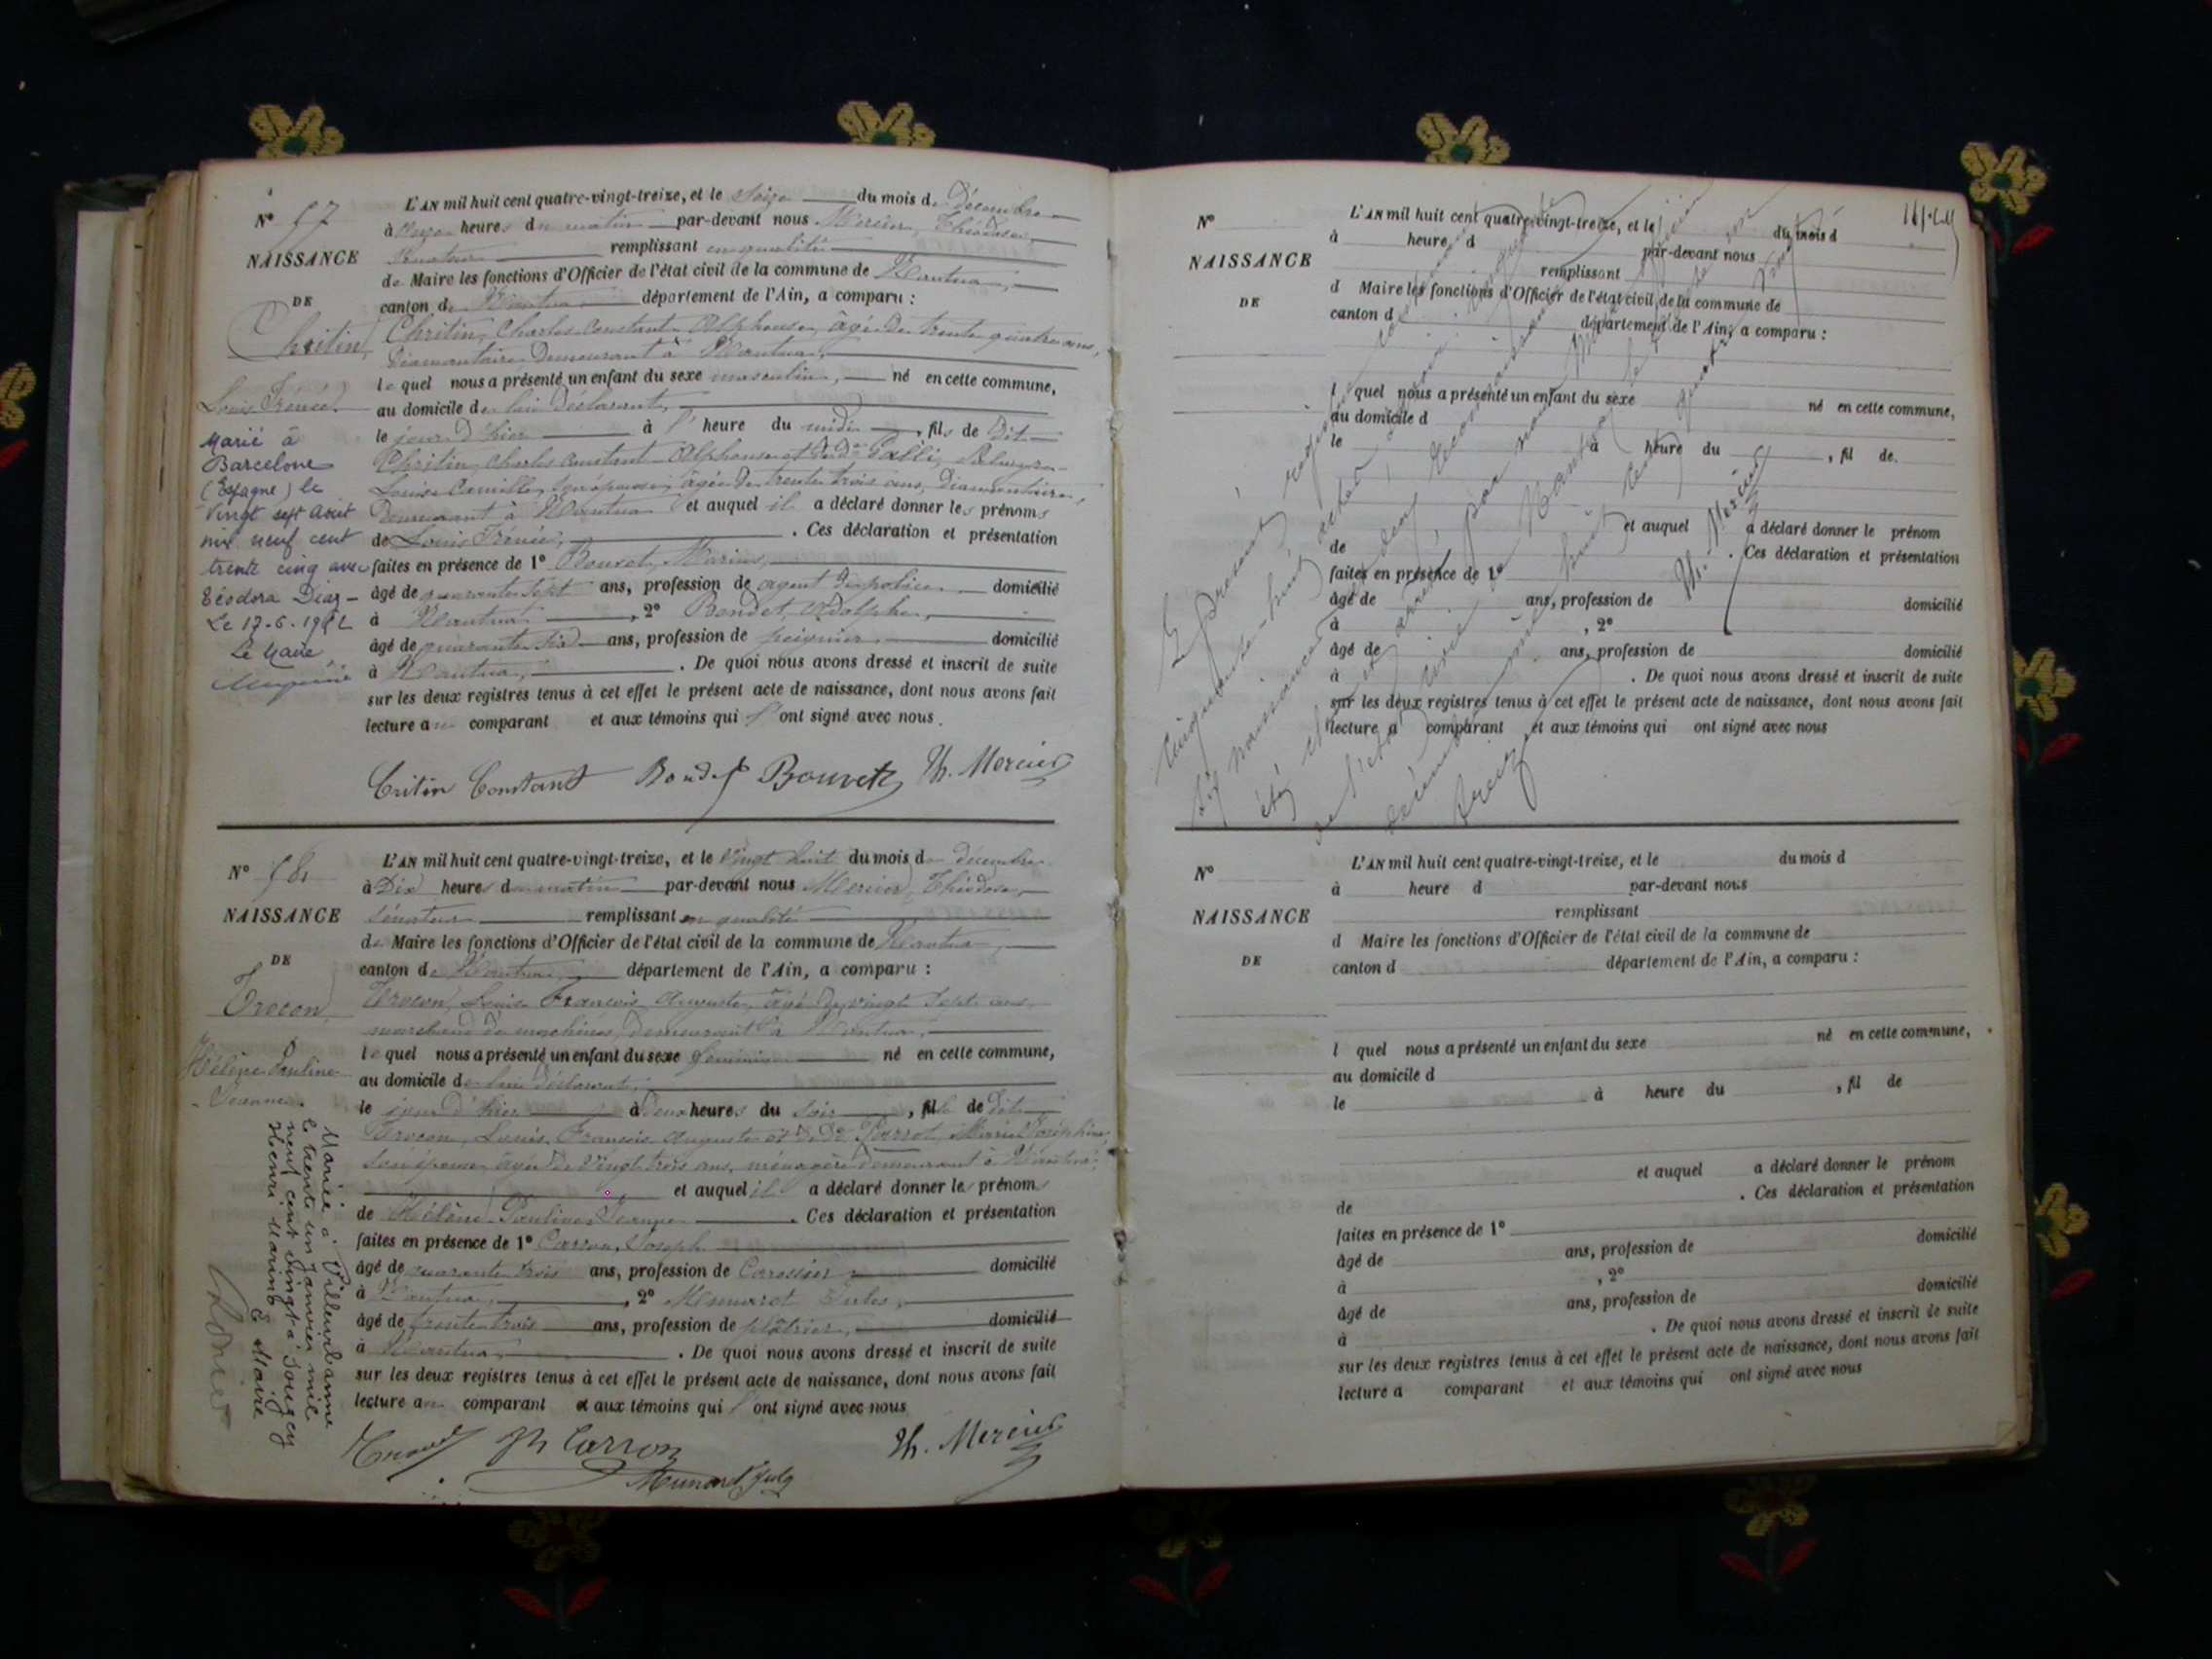 N° 57
NAISSANCE
DE
Chritin
Louis Irénée
Marié à
Barcelone
(Espagne) le
Vingt sept Août
mil neuf cent
trente cinq avec
Téodora Diaz
Le Maire
L'AN mil huit cent quatre-vingt-treize, et le seize du mois de Décembre
à onze heures du matin par-devant nous Mercier, Théodose,
Sénateur remplissant en qualité
de Maire les fonctions d'Officier de l'état civil de la commune de Nantua,
canton de Nantua département de l'Ain, a comparu :
Chritin, Charles Constant Alphonse, âgé de trente quatre ans,
Diamantaire demeurant à Nantua,
lequel nous a présenté un enfant du sexe masculin, né en cette commune,
au domicile de lui déclarant,
le jour d'hier à heure du midi, fils de dit
Chritin, Charles Constant Alphonse et de de Galli,
Louise Camille, son épouse, âgée de trente trois ans, Diamantaire,
demeurant à Nantua et auquel il a déclaré donner les prénoms
de Louis Irénée, . Ces déclaration et présentation
faites en présence de 1° Bouvet, Marius,
âgé de quarante sept ans, profession de agent de police domicilié
à Nantua , 2° Bondet, Adolphe,
âgé de quarante six ans, profession de peignier, domicilié
à Nantua, . De quoi nous avons dressé et inscrit de suite
sur les deux registres tenus à cet effet le présent acte de naissance, dont nous avons fait
lecture au comparant et aux témoins qui l'ont signé avec nous.
Critin Constant Bondet Bouvet Th. Mercier
N° 58
NAISSANCE
DE
Trocon
Hélène Pauline
Jeanne
Mariée à Villeurbanne
le trente un Janvier mil
neuf cent vingt à Jougey
Henri Marin
Le Maire
L'AN mil huit cent quatre-vingt-treize, et le vingt huit du mois de décembre
à Dix heures du matin par-devant nous Mercier, Théodose,
Sénateur remplissant en qualité
de Maire les fonctions d'Officier de l'état civil de la commune de Nantua,
canton de Nantua, département de l'Ain, a comparu :
Trocon, Louis François Auguste, âgé de vingt sept ans,
marchand de machines, demeurant à Nantua,
lequel nous a présenté un enfant du sexe féminin né en cette commune,
au domicile de lui déclarant,
le jour d'hier à deux heures du soir, fille de dit
Trocon, Louis François Auguste et de de Perrot, Marie Joséphine,
son épouse, âgée de vingt trois ans, ménagère demeurant à Nantua,
et auquel il a déclaré donner les prénoms
de Hélène Pauline Jeanne . Ces déclaration et présentation
faites en présence de 1° Carron, Joseph
âgé de quarante trois ans, profession de Carossier, domicilié
à Nantua, , 2° Munaret Jules,
âgé de trente trois ans, profession de plâtrier, domicilié
à Nantua, . De quoi nous avons dressé et inscrit de suite
sur les deux registres tenus à cet effet le présent acte de naissance, dont nous avons fait
lecture au comparant et aux témoins qui l'ont signé avec nous
Trocon Jh Carron Th. Mercier
Munaret Jules
N°
NAISSANCE
DE
L'AN mil huit cent quatre-vingt-treize, et le du mois d
à heure d par-devant nous
remplissant
d Maire les fonctions d'Officier de l'état civil de la commune de
canton d département de l'Ain, a comparu :
l quel nous a présenté un enfant du sexe né en cette commune,
au domicile d
le à heure du , fil de
et auquel a déclaré donner le prénom
de . Ces déclaration et présentation
faites en présence de 1°
âgé de ans, profession de domicilié
à , 2°
âgé de ans, profession de domicilié
à . De quoi nous avons dressé et inscrit de suite
sur les deux registres tenus à cet effet le présent acte de naissance, dont nous avons fait
lecture a comparant et aux témoins qui ont signé avec nous
Th. Mercier
N°
NAISSANCE
DE
L'AN mil huit cent quatre-vingt-treize, et le du mois d
à heure d par-devant nous
remplissant
d Maire les fonctions d'Officier de l'état civil de la commune de
canton d département de l'Ain, a comparu :
l quel nous a présenté un enfant du sexe né en cette commune,
au domicile d
le à heure du , fil de
et auquel a déclaré donner le prénom
de . Ces déclaration et présentation
faites en présence de 1°
âgé de ans, profession de domicilié
à , 2°
âgé de ans, profession de domicilié
à . De quoi nous avons dressé et inscrit de suite
sur les deux registres tenus à cet effet le présent acte de naissance, dont nous avons fait
lecture a comparant et aux témoins qui ont signé avec nous